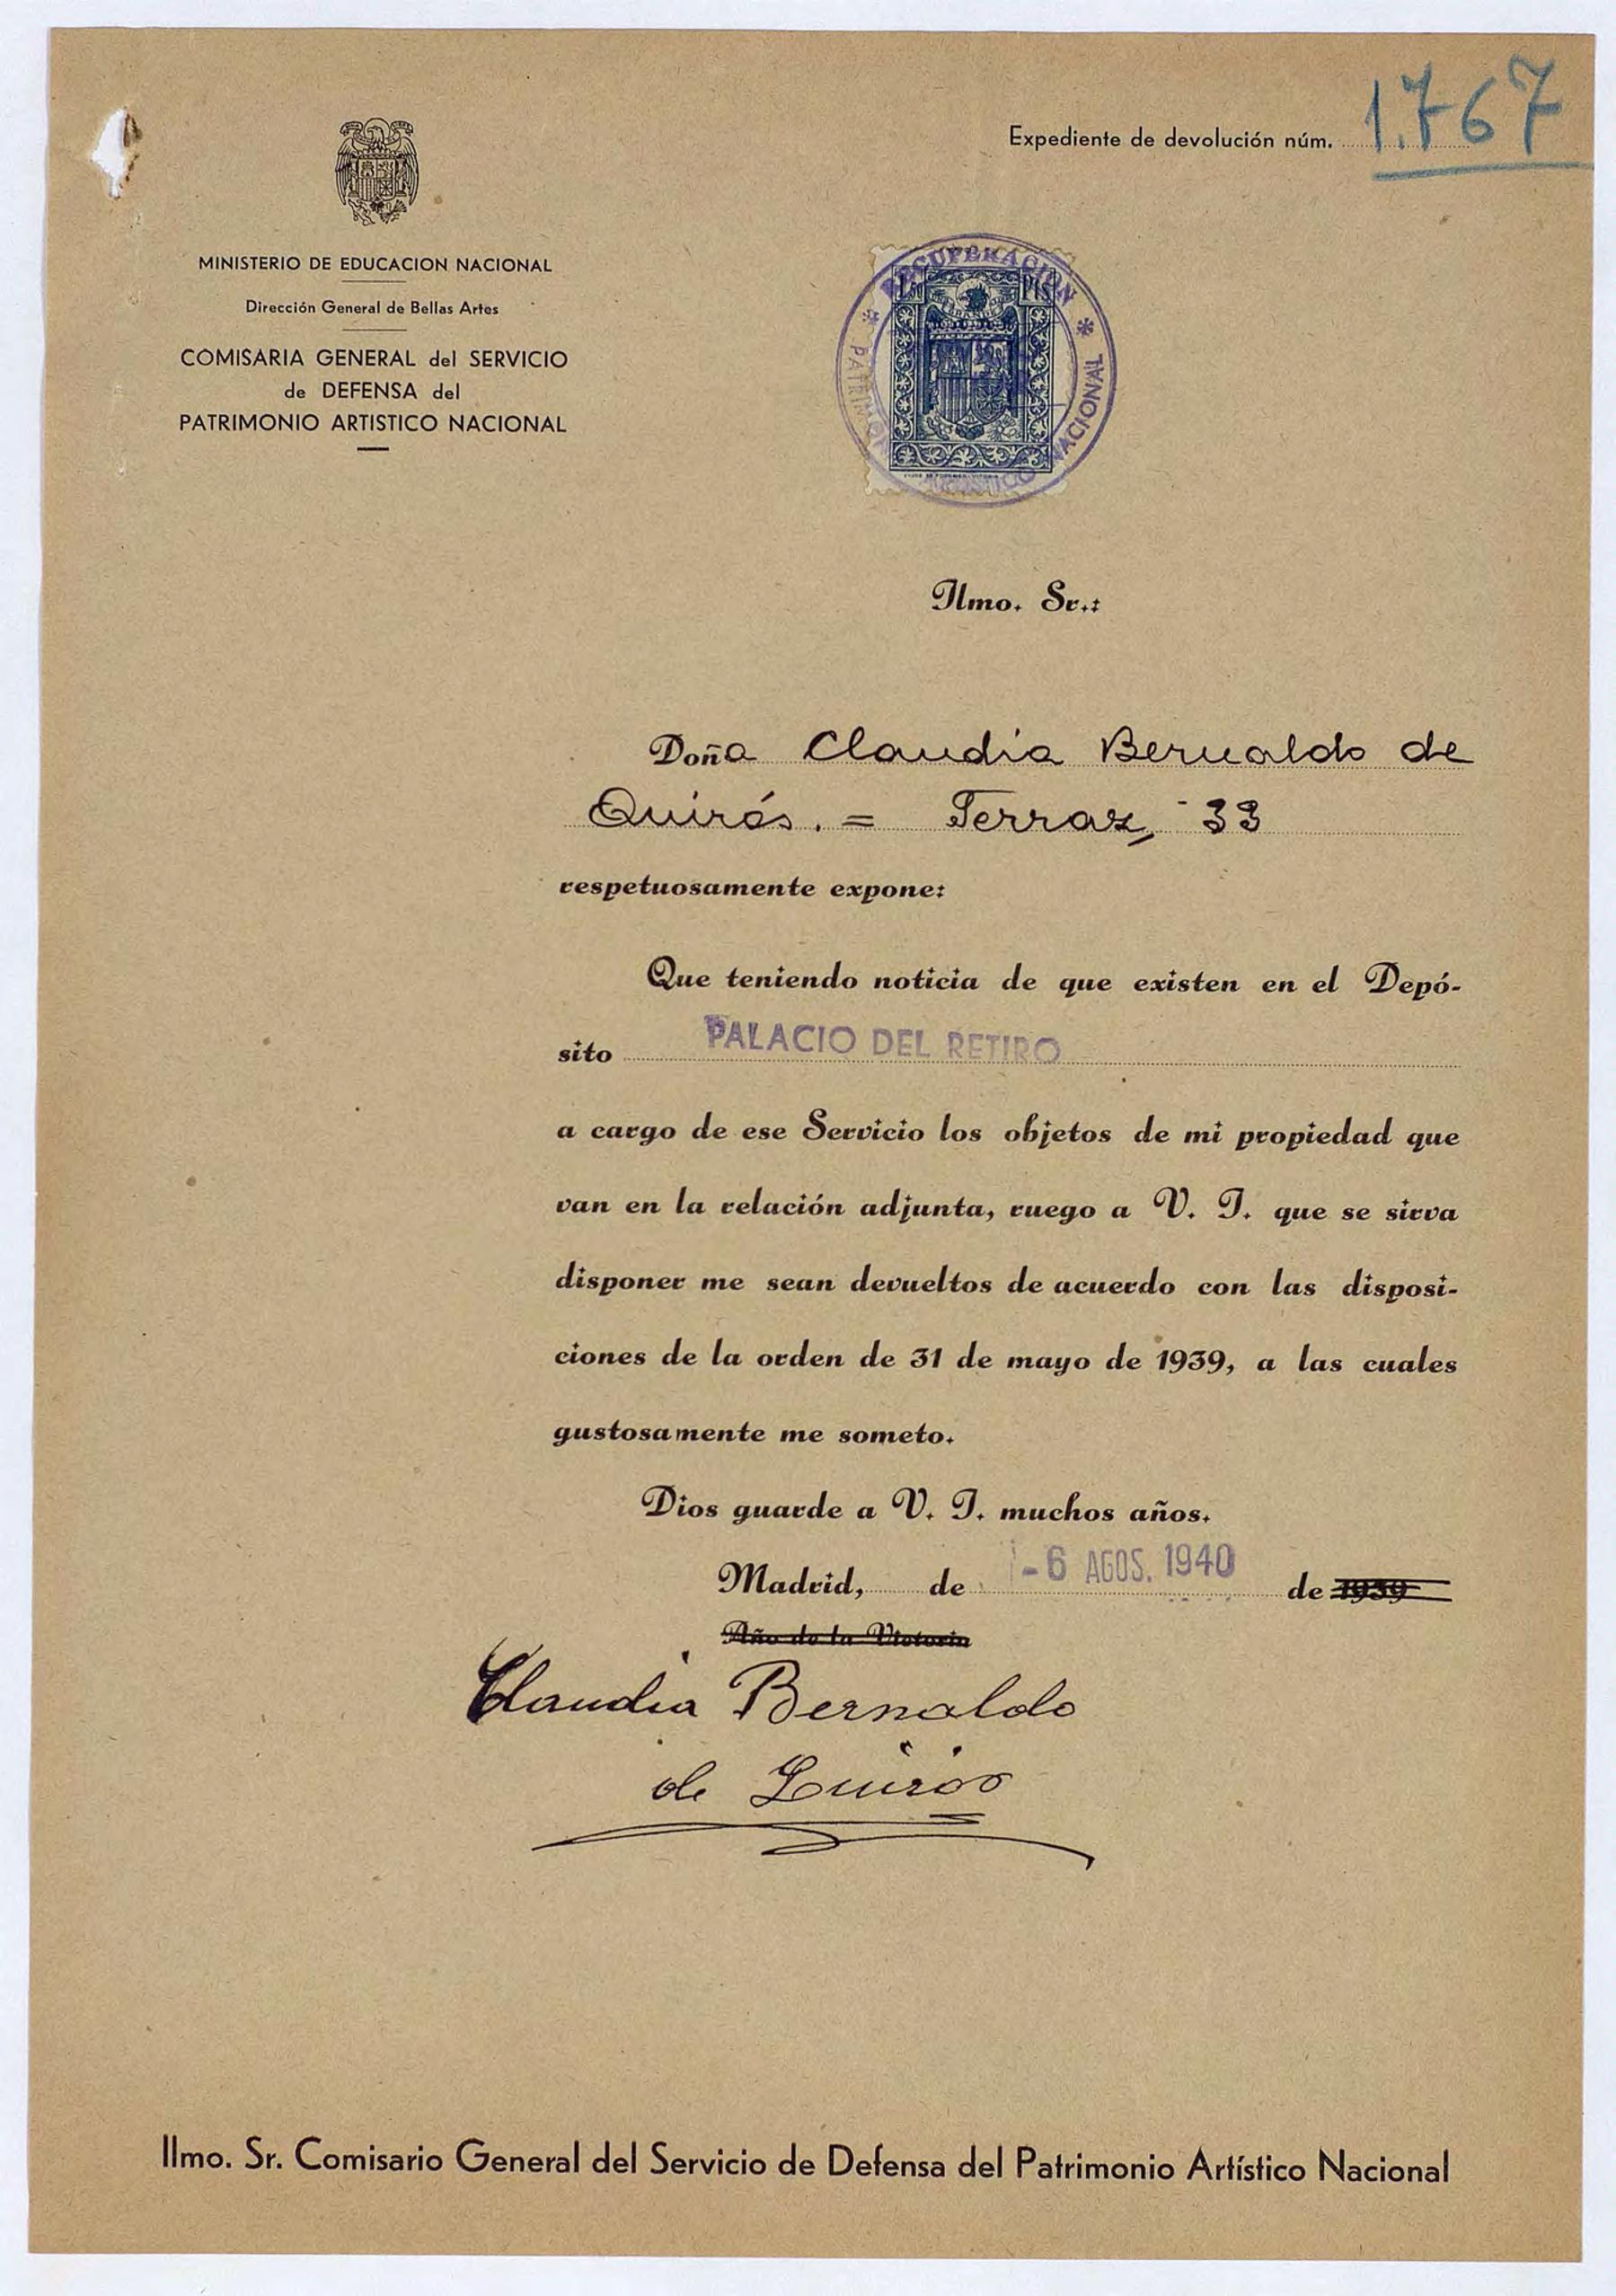 Expediente de devolución núm. 1.767
MINISTERIO DE EDUCACION NACIONAL
Dirección General de Bellas Artes
COMISARIA GENERAL del SERVICIO
de DEFENSA del
PATRIMONIO ARTISTICO NACIONAL
RECUPERACION
PATRIMONIO ARTISTICO NACIONAL
PTS
Ilmo. Sr.:
Doña Claudia Bernaldo de
Quirós. = Ferraz, 33
respetuosamente expone:
Que teniendo noticia de que existen en el Depó-
sito PALACIO DEL RETIRO
a cargo de ese Servicio los objetos de mi propiedad que
van en la relación adjunta, ruego a V. I. que se sirva
disponer me sean devueltos de acuerdo con las disposi-
ciones de la orden de 31 de mayo de 1939, a las cuales
gustosamente me someto.
Dios guarde a V. I. muchos años.
Madrid, de -6 AGOS. 1940 de 1939
Año de la Victoria
Claudia Bernaldo
de Quiros
Ilmo. Sr. Comisario General del Servicio de Defensa del Patrimonio Artístico Nacional